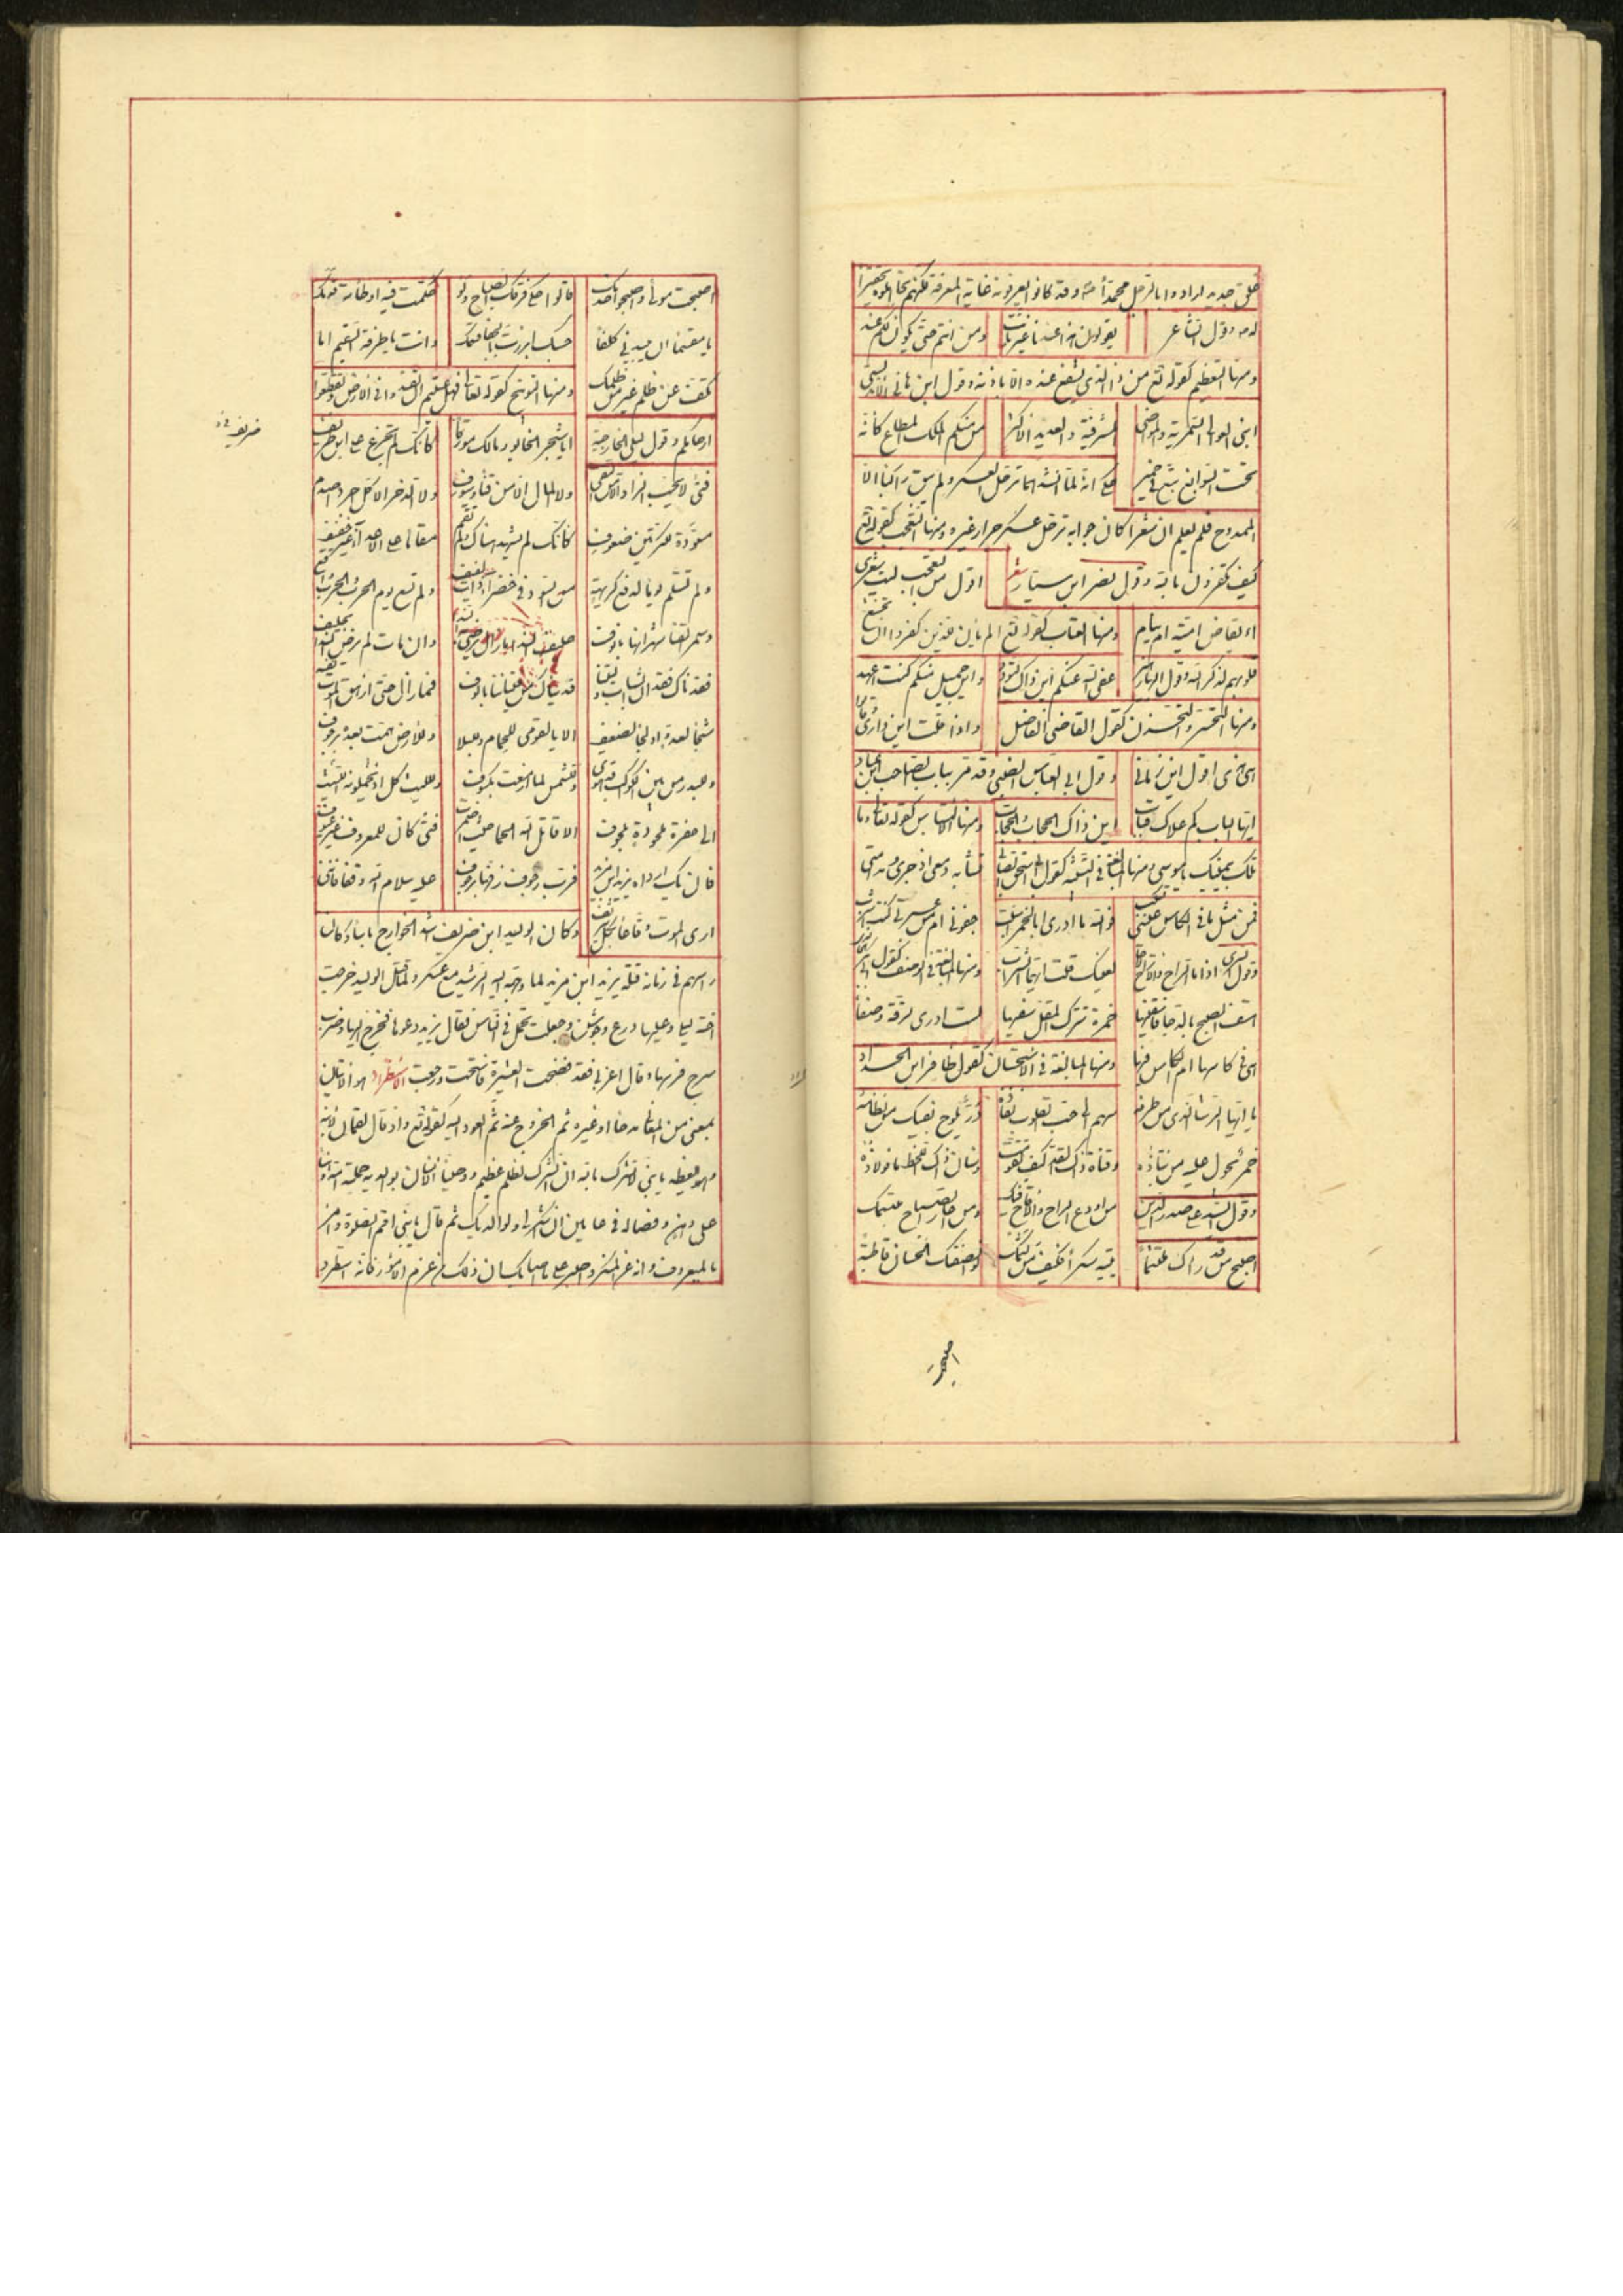 خلق جديد ارادوا بالرجل محمدا وقد كانوا يعرفونه غاية المعرفة لكنهم تجاهلوه تحقيرا
له وقول الشاعر يقولون هذا عندنا غير ثابت ومن انتم حتى يكون لكم عند
ومنها التعظيم كقوله تع من ذا الذي يشفع عنده الا باذنه وقول ابن هانى الاندلسى
ابنى العوالى السمهرية والمواضى المشرفية والعديد الاكثر من منكم الملك المطاع كانه
تحت السوابغ تبع فى حمير حكى انه لما انشدها ترجل العسكر ولم يبق راكبا الا
الممدوح فلم يعلم ان شعرا كان جوابه ترجل عسكر جرار غيره ومنها التعجب كقوله تع
كيف تكفرون بالله وقول نصر ابن سيار شعر اقول من التعجب ليت شعرى
اءيقاض امية ام نيام ومنها العتاب كقوله تع الم يأن للذين كفروا ان تخشع
قلوبهم لذكر الله وقول البهاء زهير عفى الله عنكم اين ذاك التودد واين جميل منكم كنت اعهد
ومنها التحسر والتحزن كقول القاضى الفاضل واذا قلت اين دارى قالوا
هى هذى اقول اين زمانى وقول ابى العباس الضبى وقد مر بباب الصاحب ابن عباد
ايها الباب لم علاك اكتئاب اين ذاك الحجاب والحجاب ومنها الايناس كقوله تعا وما
تلك بيمينك يا موسى ومنها المبالغة فى التشبيه كقول اسحق الصابى تشابه دمعى اذ جرى ومدامتى
فمن مثل ما فى الكاس عينى تسكب فوالله ما ادرى ابالخمر اسبلت جفونى ام من عبرتى كنت اشرب
لعينيك قلت ايهما الشراب ومنها المبالغة فى الوصف كقول
اسقف الصبيح بالدجا فاسقنيها خمرة تترك المقل سفيها لست ادرى لرقة وصفا
هى فى كاسها ام الكاس فيها ومنها المبالغة فى الاستحسان كقول ظافر ابن الحداد
يا ايها الرشا الذى من طرفه سهم الى حب القلوب نفاذه در يلوح بفيك من نظامه
خمر يجول عليه من نباذه وقناة ذاك القد كيف تقومت وسنان ذاك اللحظ ما فولاذه
وقول السيد على صدر الدين من اودع الراح والاقاح فمك ومن اعار الصباح مبتسمك
اصبح من قد راك مغتنما يتيه سكرا فكيف من لثمك لو انصفتك الحسان قاطبة
اصبحت
اصبحت مولى واصبحوا خدمك قالوا حكى فرقك الصباح ولو حكمت فيه اوطاته قدمك
يا سقما ان جيد بى كلفا حسبك ابرزت بالجفا وانت يا طرفه السقيم اما
تكف عن ظلم غير من ظلمك ومنها التوبيخ كقوله تعا فهل عسيتم ان تفسدوا فى الارض وتقطعوا
ارحامكم وقول ليلى الخارجية ايا شجر الخابور مالك مورقا كانك لم تجزع على ابن طريف
فتى لا يحب الزاد الا من التقى ولا المال الا من قنا وسيوف ولا الذخر الا كل جرداء صلدم
معودة للكرتين صفوف كانك لم تشهد هناك ولم تقم مقاما على الاعداء غير خفيف
ولم تستلم يوما لدفع كريهة من السرد فى خضراء ذات رفيف ولم تسع يوم الحرب والحرب لاقح
وسمر القنا ينكزنها بانوف حليف الندى ما عاش يرضى به الندى وان مات لم يرض الندى بحليف
فقدناك فقدان الشباب وليتنا فديناك من فتياننا بالوف فما زال حتى ازهق الموت نفسه
شجا لعدو او لجا لضعيف الا يا لقومى للحمام وللبلا وللارض همت بعده برجوف
وللبدر من بين الكواكب قد هوى وللشمس لما ازمعت بكسوف ولليث كل اذ يحملونه
الى حفرة ملحودة الا قاتل الله الحشا حيث اضمرت فتى كان للمعروف غير عيوف
فان يك ارداه يزيد ابن مزيد فرب زحوف لفها بزحوف عليه سلام الله وقفا فاننى
ارى الموت وقاعا بكل شريف وكان الوليد ابن ضريف اشد الخوارج باسا وكان
راسهم فى زمانه قتله يزيد ابن مزيد لما وجهه اليه الرشيد مع عسكر ولما قتل الوليد خرجت
اخته ليلى وعليها درع وجوشن وجعلت تحمل فى الناس فقال يزيد دعوها فخرج اليها وضرب
سرج فرسها وقال اعزبى فقد فضحت العشيرة فاستحت ورجعت الاستطراد هو الاتيان
بمعنى من المعانى مدحا او غيره ثم الخروج عنه ثم العود اليه كقوله تع واذ قال لقمان لابنه
وهو يعظه يا بنى لا تشرك بالله ان الشرك لظلم عظيم ووصينا الانسان بوالديه حملته امه وهنا
على وهن وفصاله فى عامين ان اشكر لى ولوالديك ثم قال يا بنى اقم الصلوة وأمر
بالمعروف وانه عن المنكر واصبر على ما اصابك ان ذلك من عزم الامور فانه استطرد
ضريف